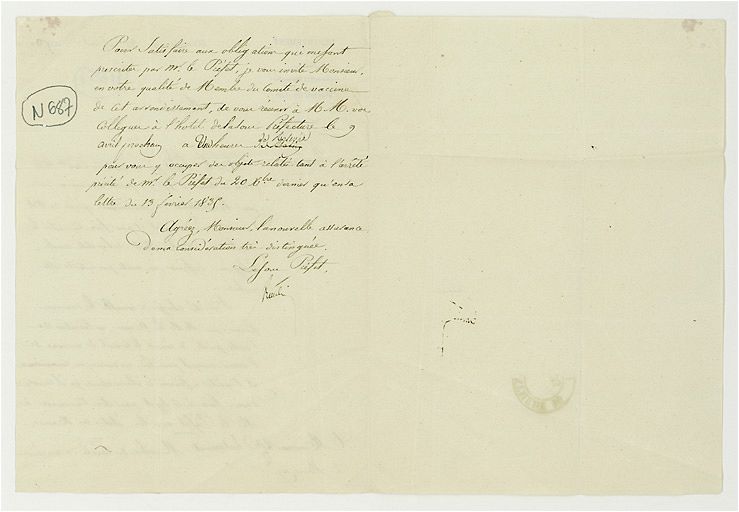 N 687
Pour Satisfaire aux obligation qui me sont
prescrites par Mr. le Préfet, je vous invite Monsieur,
en votre qualité de Membre du Comité de vaccine
de cet arrondissement, de vous réunir à M M. vos
Collegues à l'hotel de la Sous Préfecture le 9
avril prochain à
pour vous y occuper des objets relatés tant à l'arrêté
précité de Mr. le Préfet du 20 Xbre dernier qu'en sa
lettre du 13 février 1835.
Agréez, Monsieur, la nouvelle assurance
de ma considération très distinguée.
Le Sous Préfet,